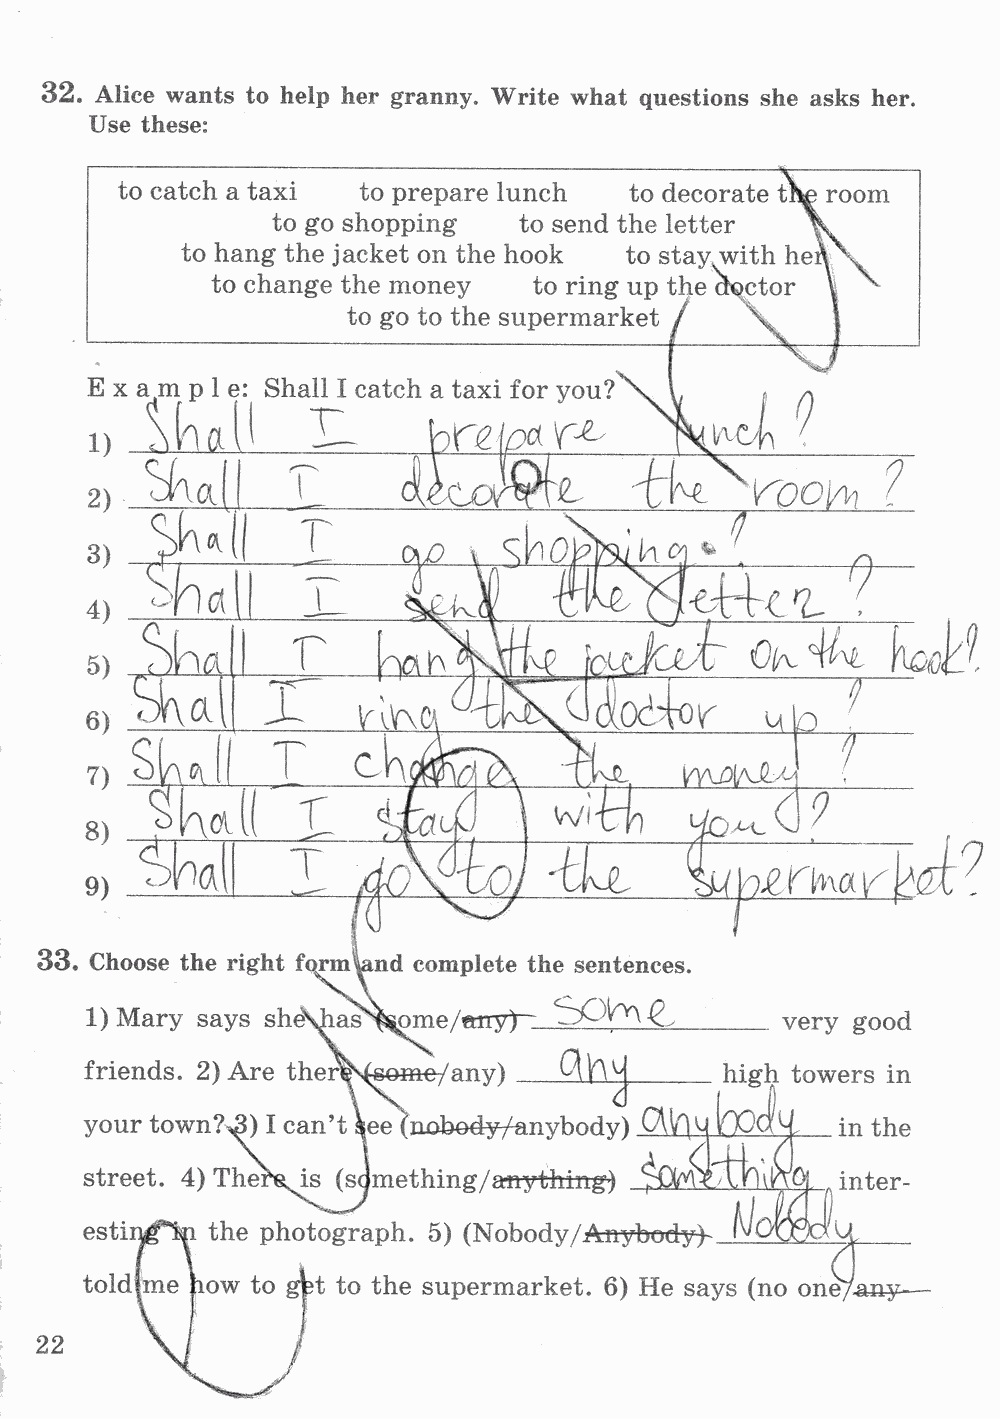 32. Alice wants to help her granny. Write what questions she asks her.
Use these:
to catch a taxi to prepare lunch to decorate the room
to go shopping to send the letter
to hang the jacket on the hook to stay with her
to change the money to ring up the doctor
to go to the supermarket
Example: Shall I catch a taxi for you?
1) Shall I prepare lunch?
2) Shall I decorate the room?
3) Shall I go shopping?
4) Shall I send the letter?
5) Shall I hang the jacket on the hook?
6) Shall I ring the doctor up?
7) Shall I change the money?
8) Shall I stay with you?
9) Shall I go to the supermarket?
33. Choose the right form and complete the sentences.
1) Mary says she has (some/any) some very good
friends. 2) Are there (some/any) any high towers in
your town? 3) I can't see (nobody/anybody) anybody in the
street. 4) There is (something/anything) something inter-
esting in the photograph. 5) (Nobody/Anybody) Nobody
told me how to get to the supermarket. 6) He says (no one/any-
22